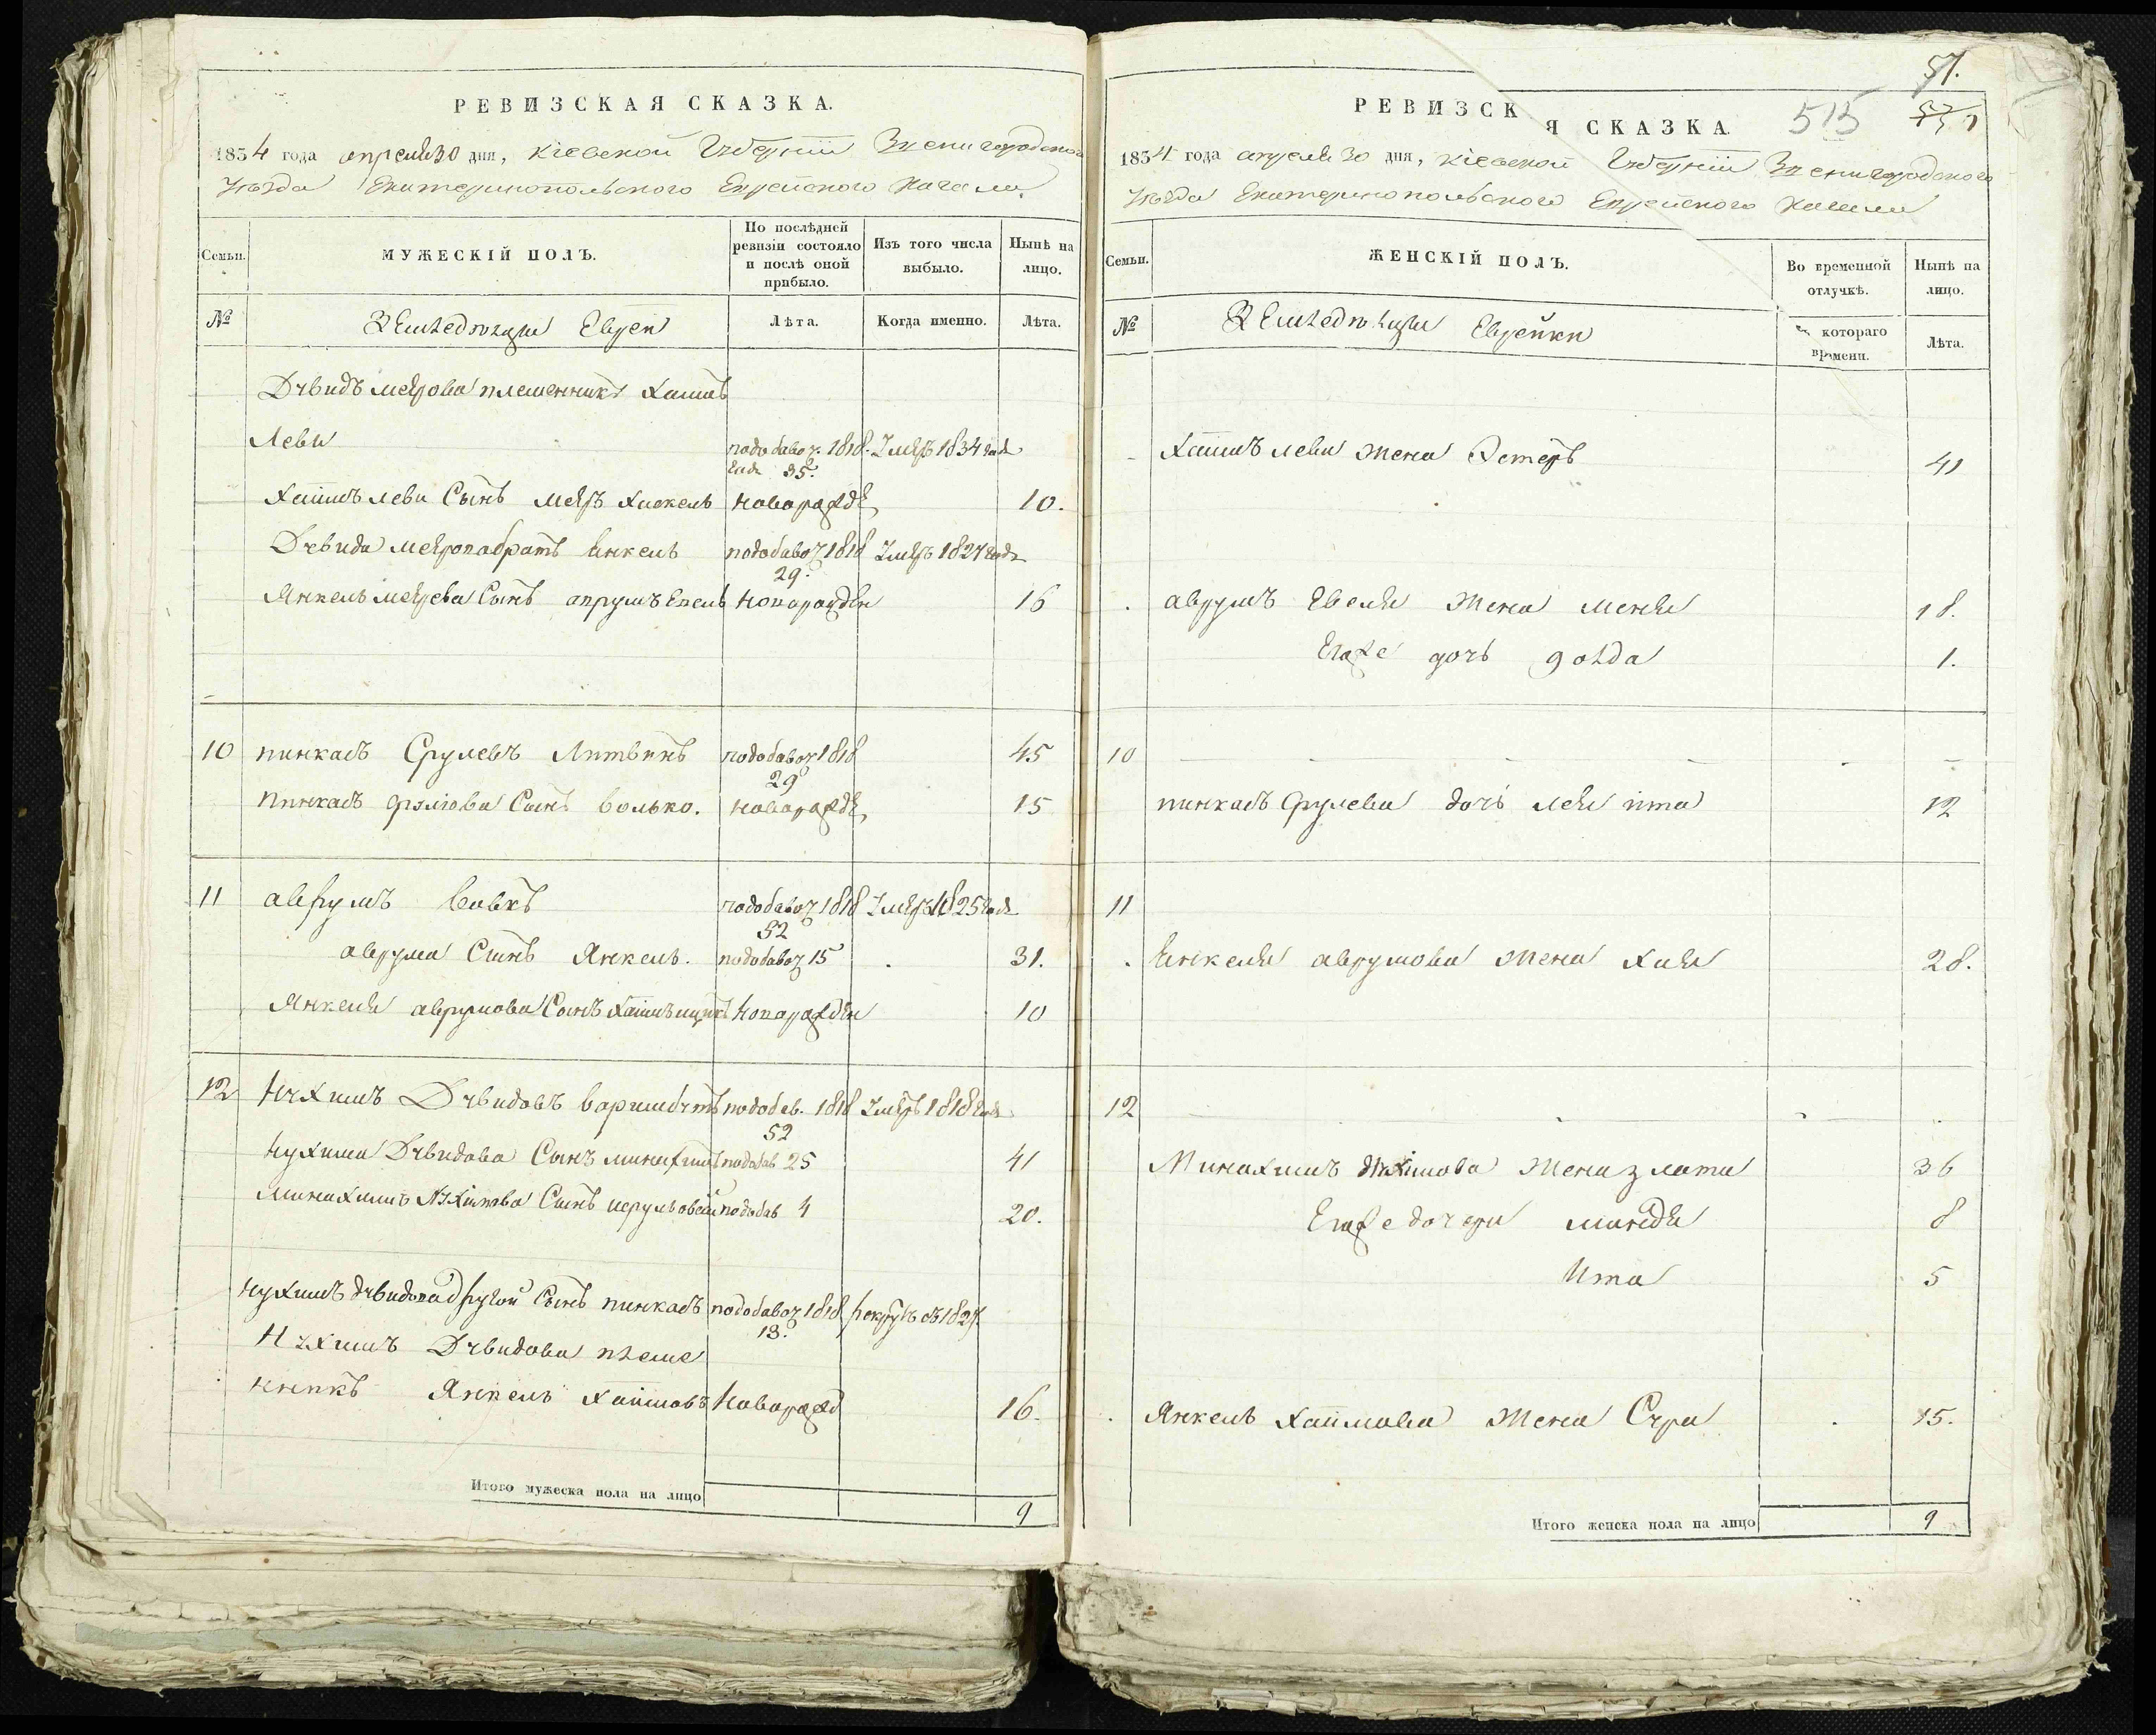 РЕВИЗСКАЯ СКАЗКА.
1834 года апреля 30 дня, Кіевской Губерніи Звенигородского
Уезда Екатеринопольского Еврейского Кагала
Семьи.
МУЖЕСКІЙ ПОЛЪ.
По послѣдней ревизіи состояло и послѣ оной прибыло.
Изъ того числа выбыло.
Нынѣ на лицо.
№
Земледельцы Евреи
Лѣта.
Когда именно.
Лѣта.
Дувидъ меерова племенникъ Хаимъ
Леви
по добавоч. 1818 35. Умеръ 1834 года
Хаимъ леви Сынъ мееръ Хаскель новорожде 10.
Дувида мееровабратъ Янкель по добавоч 1818 29. Умеръ 1827 года
Янкель меерова Сынъ аврумъ Евель новорожден 16
10 пинкасъ Срулевъ Литвинъ по добавоч 1818 29 45
Пинкасъ Сынъ волько. новорожде 15
11 аврумъ Вовкъ по добавоч 1818 52 Умеръ 1825 года
аврума Сынъ Янкель. по добавоч 15 31.
Янкеля аврумова Сынъ новорожден 10
12 Нухимъ Дувидовъ по добав. 1818 52 Умеръ 1818 года
Нухима Дувидова Сынъ минахимъ по добав 25 41
Минахимъ Нухимова Сынъ по добав 4 20.
Нухимъ дувидова другой Сынъ пинкасъ по добавоч 1818 13. 1827
Нухимъ Дувидова племе
нникъ Янкель Хаимовъ новорожд 16.
Итого мужеска пола на лицо 9
57.
515
РЕВИЗСК Я СКАЗКА.
1834 года апреля 30 дня, Кіевской Губерніи Звенигородского
Уезда Екатеринопольского Еврейского Кагала
Семьи.
ЖЕНСКІЙ ПОЛЪ.
Во временной отлучкѣ.
Нынѣ на лицо.
№
Земледельцы Еврейки
котораго времени.
Лѣта.
Хаимъ леви жена Эстеръ 41
аврумъ Евеля жена меня 18.
Егоже дочь голда 1.
10
пинкасъ Срулева дочь лея ита 12
11
Янкеля аврумова жена Хая 28.
12
Минахимъ Нухимова жена злата 36
Егоже дочери миндя 8
Ита 5
Янкель Хаимова жена Сура 15.
Итого женска пола на лицо 9